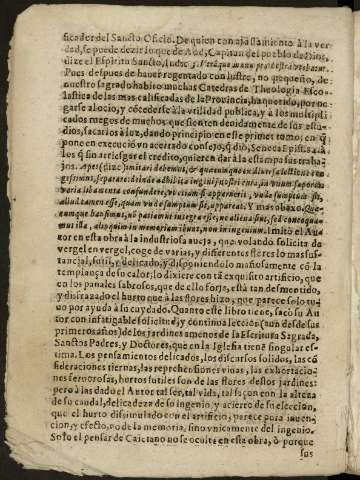 ficador del Sancto Oficio. De quien con ajustamiento à la ver
dad, se puede dezir lo que de Aod, Capitan del pueblo de Dios,
dize el Espiritu Sancto, Iudic. 3. Vtraque manu pro dextra vtebatur.
Pues despues de hauer regentado con lustre, no pequeño, de
nuestro sagrado habito muchas Catedras de Theologia Esco-
lastica de las mas calificadas de la Prouincia, ha querido, por ne
garse al ocio, y cõcederse à la vtilidad publica, y à los multipli
cados ruegos de muchos que sienten doctamente de sus estu-
dios, sacarlos à luz, dando principio en este primer tomo; en q̃
pone en execució vn acertado consejo, q̃ diò, Seneca Epist. 84. à
los q̃ sin arriesgar el credito, quieren dar à la estãmpa sus traba
jos. Apes (dize) imitari debemus, & quæcunque ex diuersa lectione con
gessimus, separare: deinde adhibita ingenij nostri cura, in vnum saporem
varia libamenta confundere, vt etiam si apparuerit, vnde sumptum sit,
aliud tamen esse, quam vnde sumptum sit, appareat. Y mas abaxo. Quæ-
cunque hausimus, nõ patiamur integra esse, ne aliena sint, sed concoqua-
mus illa, alioquin in memoriam ibunt, non in ingenium. Imitò el Au
tor en esta obra à la industriosa aueja, que volando solicita de
vergel en vergel, coge de varias, y differentes flores lo mas sus-
tancial, sutil, y delicado, y disponiendolo mañosamente cõ la
templança de su calor; lo dixiere con tã exquisito artificio, que
en los panales sabrosos, que de ello forja, està tan desmentido,
y disfrazado el hurto que à las flores hizo, que parece solo tu-
uo por ayuda à su cuydado. Quanto este libro tiene, sacò su Au
tor con infatigable solicitud, y continua lección (aun desde sus
primeros años) de los jardines amenos de la Escritura Sagrada,
Sanctos Padres, y Doctores, que en la Iglesia tiene singular es-
tima. Los pensamientos delicados, los discursos solidos, las cõ
sideraciones tiernas, las reprehensiones viuas, las exhortacio-
nes feruorosas, hurtos sutiles son de las flores destos jardines:
pero à las dado el Autor tal ser, tal vida, tal saçon con la alteza
de su caudal, delicadeza de su ingenio, y acierto de su eleccion,
que el hurto dissimulado con el artificio, parece pura inuen-
cion, y efecto, no de la memoria, sino vnicamente del ingenio.
Solo el pensar de Caietano no se oculta en esta obra, ò porque
sus